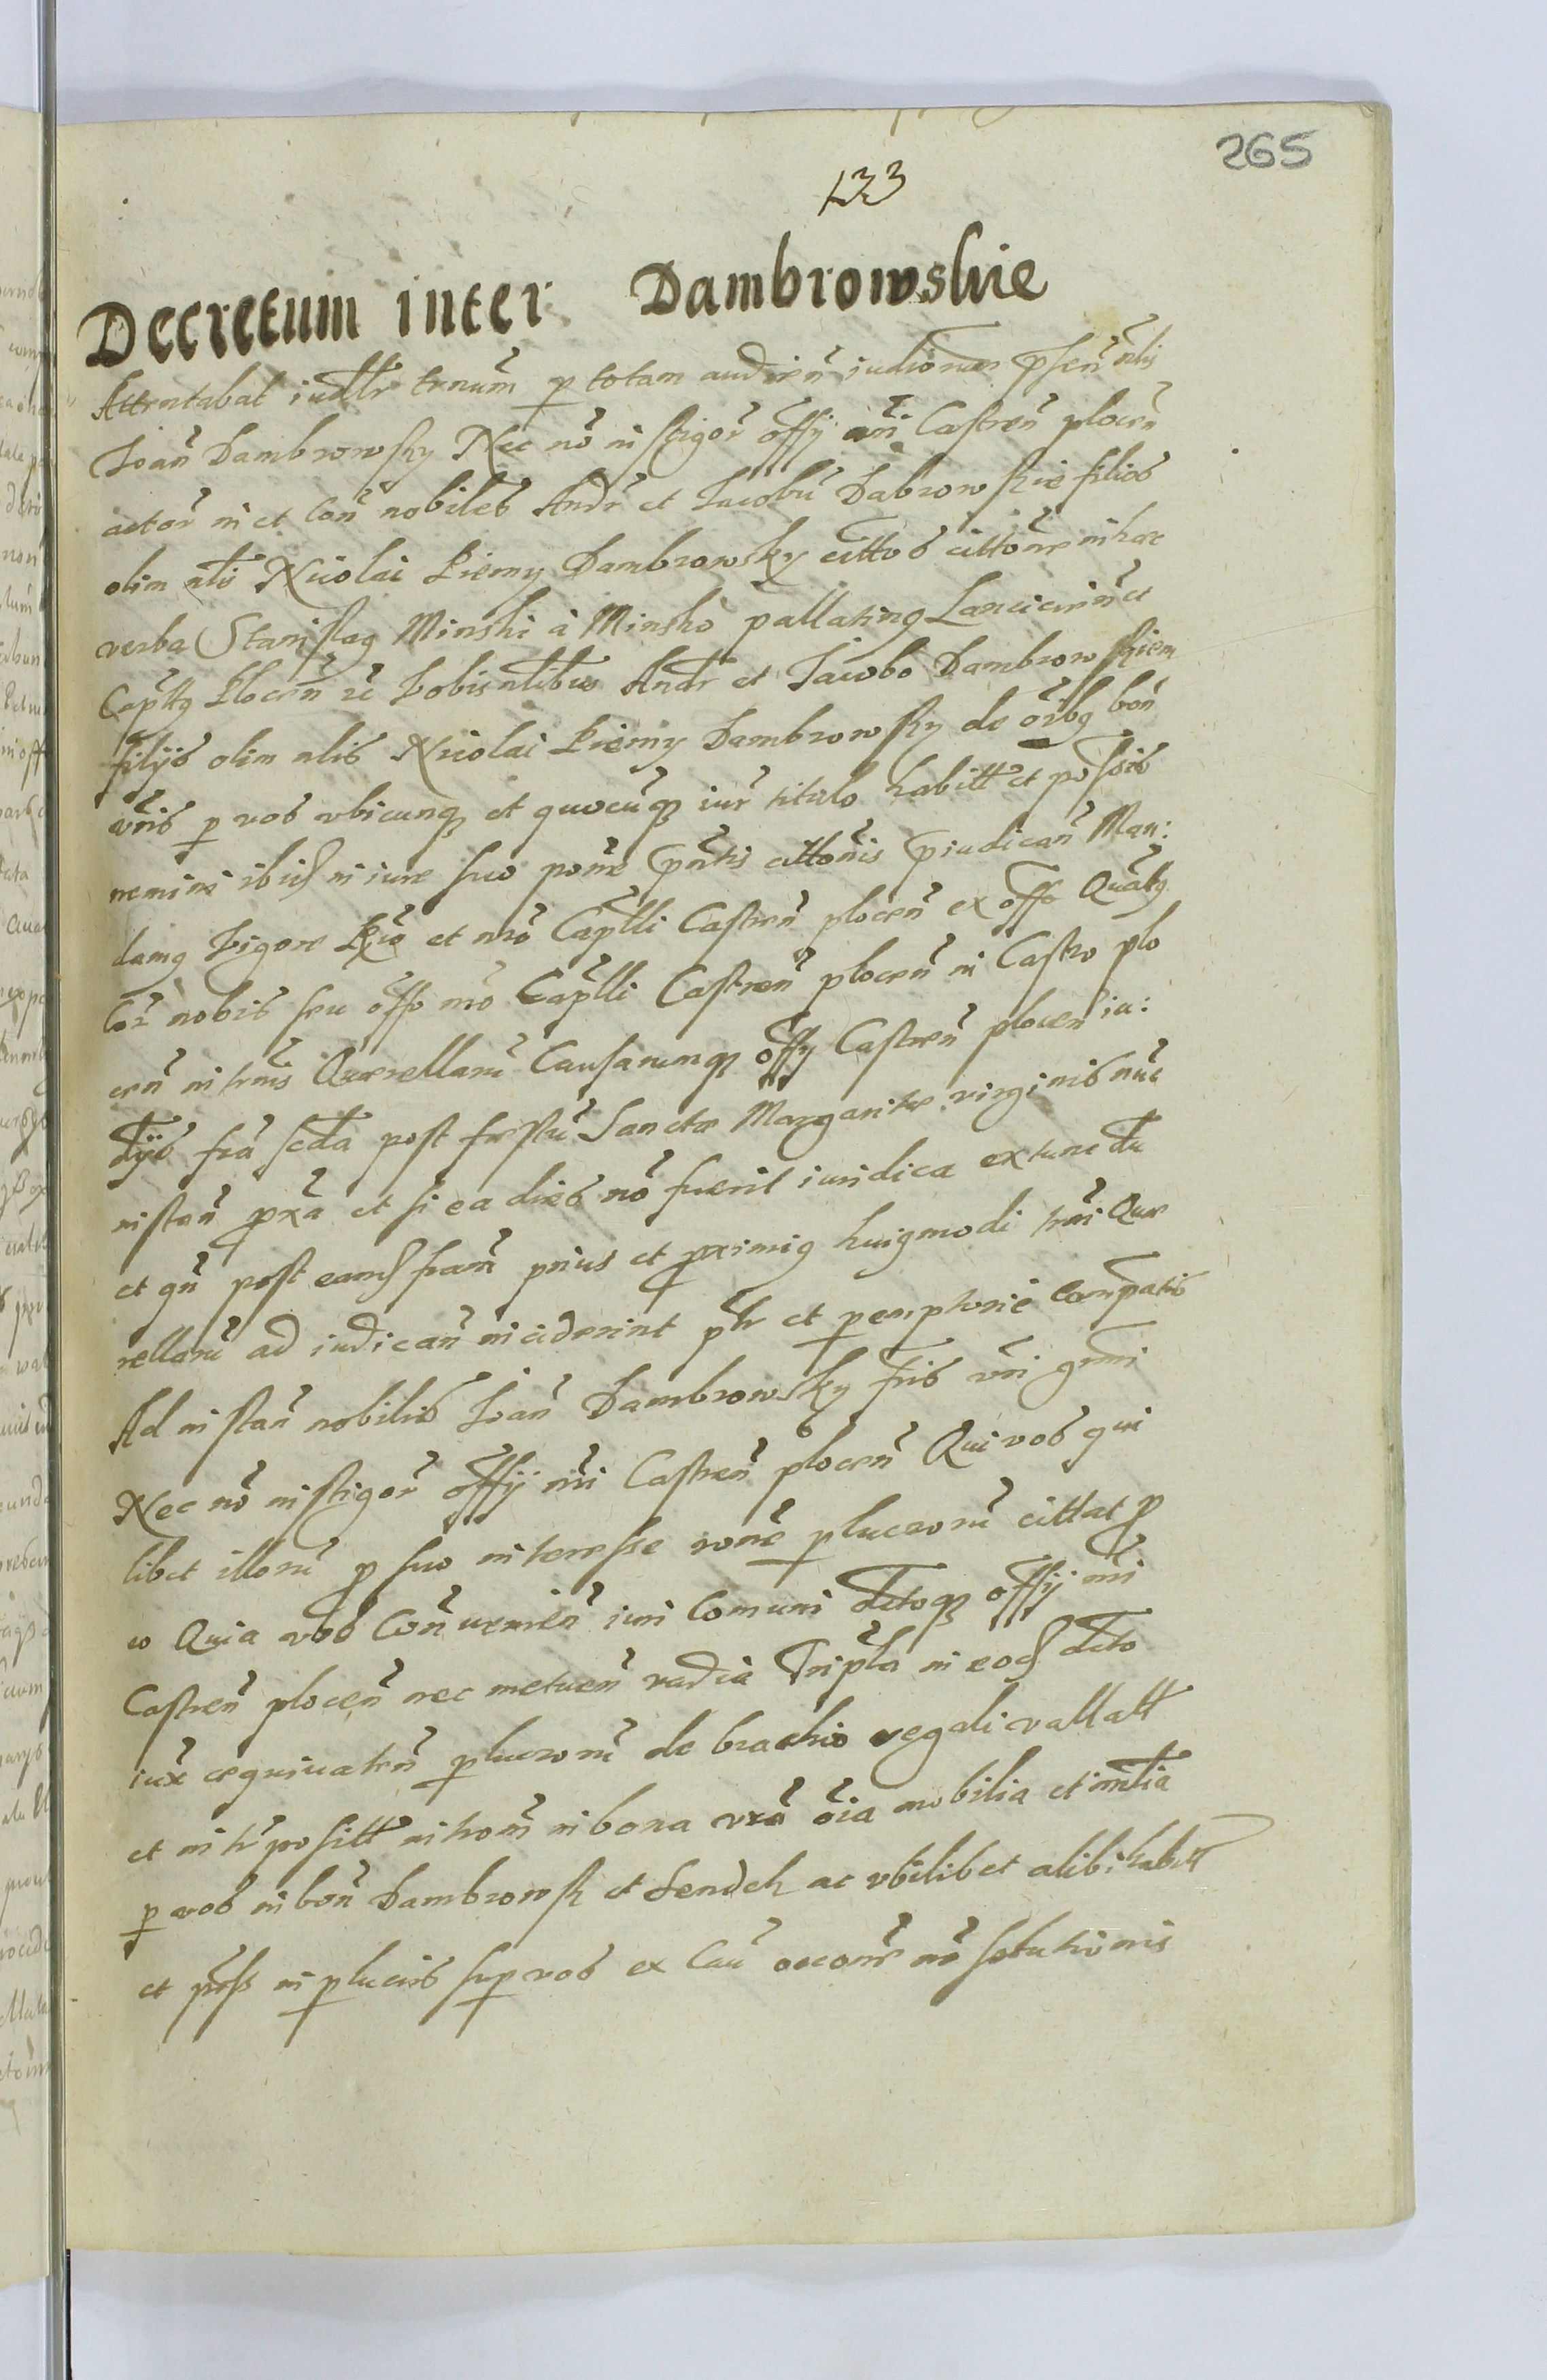 265
133
Decretum inter Dambrowskie
Attentabat iudlr trnum p totam audien iudionem psen nlis
Joan Dambrowsky Nec no instigor offy nri Castren plocen
actor in et Con nobiles Andr et Jacobu Dabrowskie filios
olim nlis Nicolai Riemy Dambrowsky cittos cittone in hac
verba Stanislag Minski à Minsko pallating Lancicien et
Captg Plocen rc Vobis nlibus Andr et Jacobo Dambrowskiem
filijs olim nlis Nicolai Riemy Dambrowsky de oibg bon
vris p vos vbicunq et quocuq iur titulo habitt et possis
nemini ibid in iure suo pone pntis cittonis piudican Man:
damg Vigore Rio et nro Captli Castren plocen ex offo Quatg
Cor nobis seu offo nro Captli Castren plocen in Castro plo
cen in trnis Querellaru Causarumq offy Castren plocen iu:
dijs fra scda post festu Sanctæ Margaritæ virginis nuc
instan pxa et si ea dies no fuerit iuridica extunc du
et qn post eand fram prius et proximig huigmodi trni Quæ
rellaru ad iudican inciderint ptr et peremptorie compatis
Ad instan nobilis Joan Dambrowsky fris vri grmi
Nec no instigor offij nri Castren plocen Qui vos qui
libet illoru p suo interesse rone plucroru cittat p
eo Quia vos Conuenien iuri Comuni dctoq offij nri
Castren plocen nec metuen vadia Tripla in eod dcto
iux æquiualen plucroru de brachio regali vallatt
et intr positt introm in bona vra oia mobilia et imlia
p vos in bon Dambrowsk et Sendek ac vbilibet alibi habitt
et poss in plucris sup vos ex Cau occone no solutionis